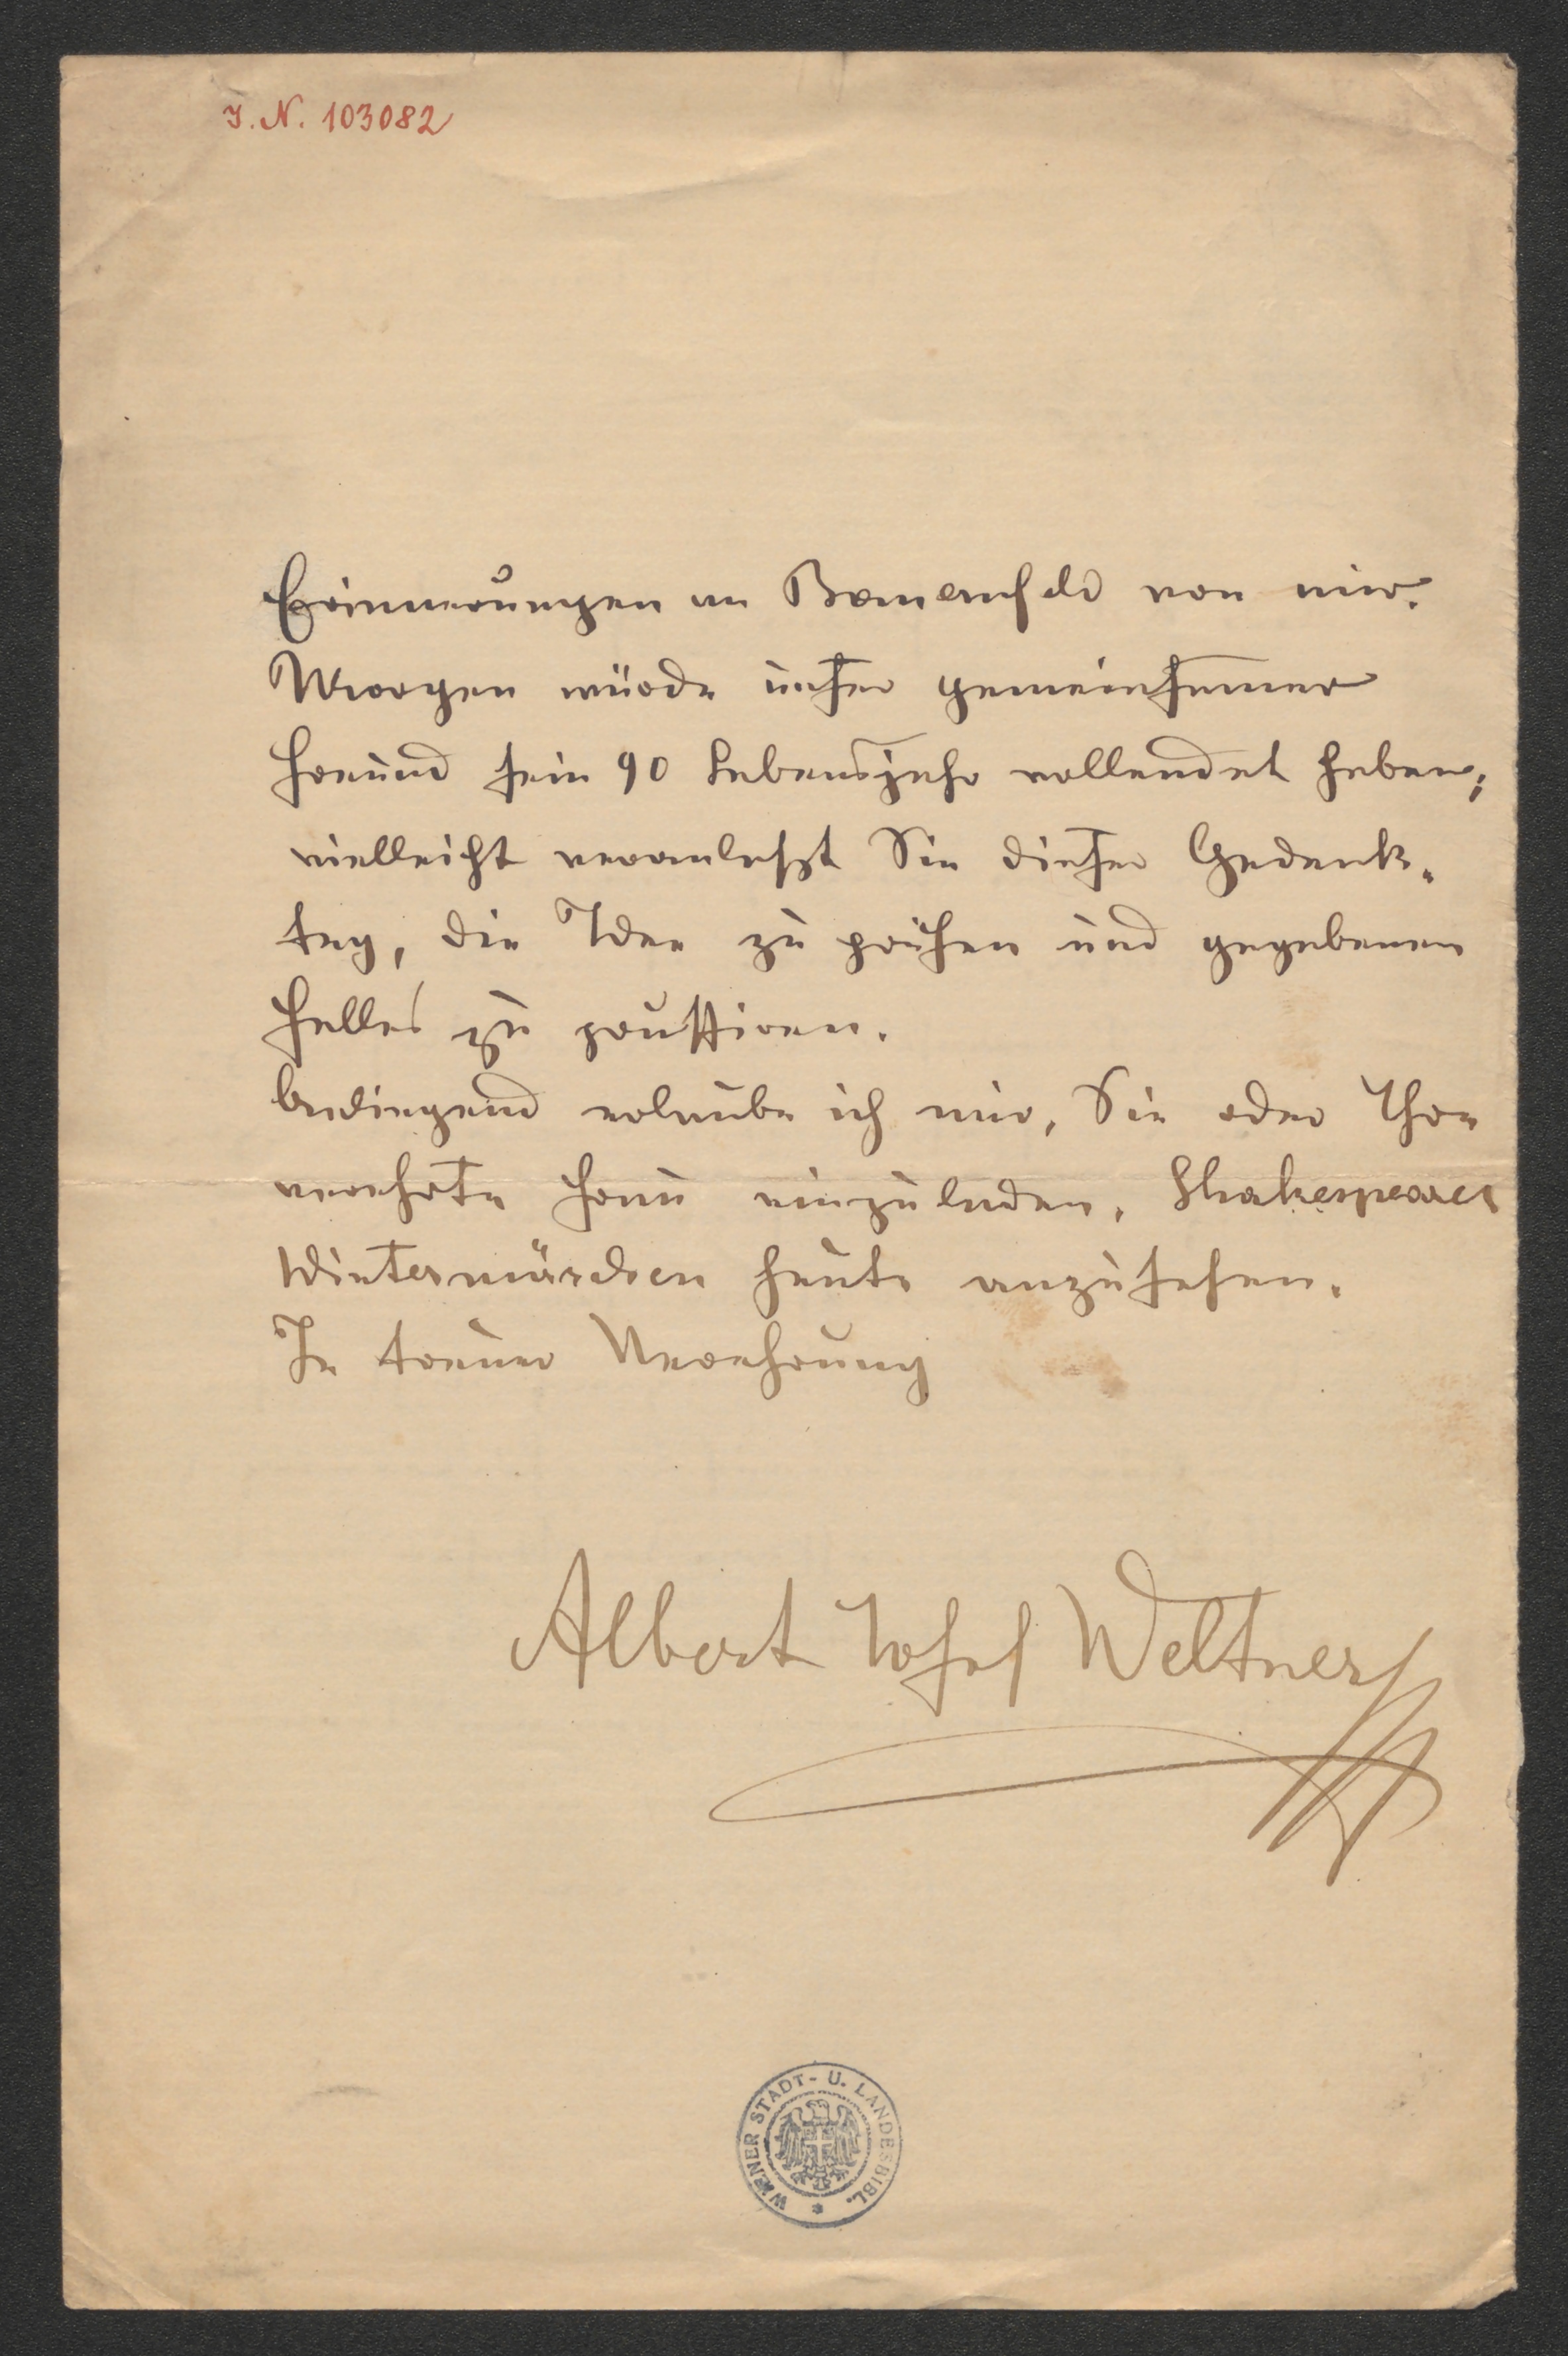 I. N. 103082
Erinnerungen an Bauernfeld von mir.
Morgen würde unser gemeinsamer
Freund sein 90 Lebensjahr vollendet haben;
vielleicht veranlaßt Sie dieser Gedenk-
tag, die Idee zu prüfen und gegebenen
Falles zu poussiren.
beiliegend erlaube ich mir, Sie oder Ihre
verehrte Frau einzuladen, Shakespeares
Wintermärchen heute anzusehen.
In treuer Verehrung
Albert Josef Weltner
WIENER STADT- U. LANDESBIBL.